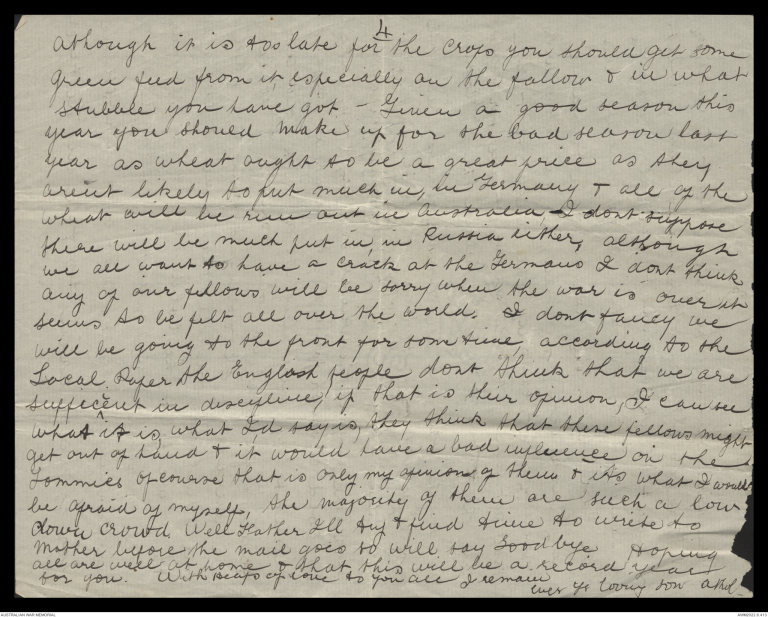 4
athough it is too late for the crops you should get some
green feed from it, especially on the fallow & in what
stubble you have got - Given a good season this
year you should make up for the bad season last
year as wheat ought to be a great price as they
arent likely to put much in, in Germany & all of the
wheat will be run out in Australia, I dont suppose
there will be much put in, in Russia either, although
we all want to have a crack at the Germans I dont think
any of our fellows will be sorry when the war is over it
seems to be felt all over the world. I dont fancy we
will be going to the front for some time, according to the
Local Paper, the English people dont think that we are
sufficent in discipline, if that is their opinion, I can see
what it is, what I'd say is, they think that these fellows might
get out of hand & it would have a bad influence on the
Tommies of course that is only my opinion of them & its what I would
be afraid of myself, the majority of them are such a low
down crowd. Well Father I'll try & find time to write to
Mother before the mail goes so will say Goodbye Hoping
all are well at home & that this will be a record year
for you. With heaps of love to you all I remain
ever yr loving son
AUSTRALIAN WAR MEMORIAL